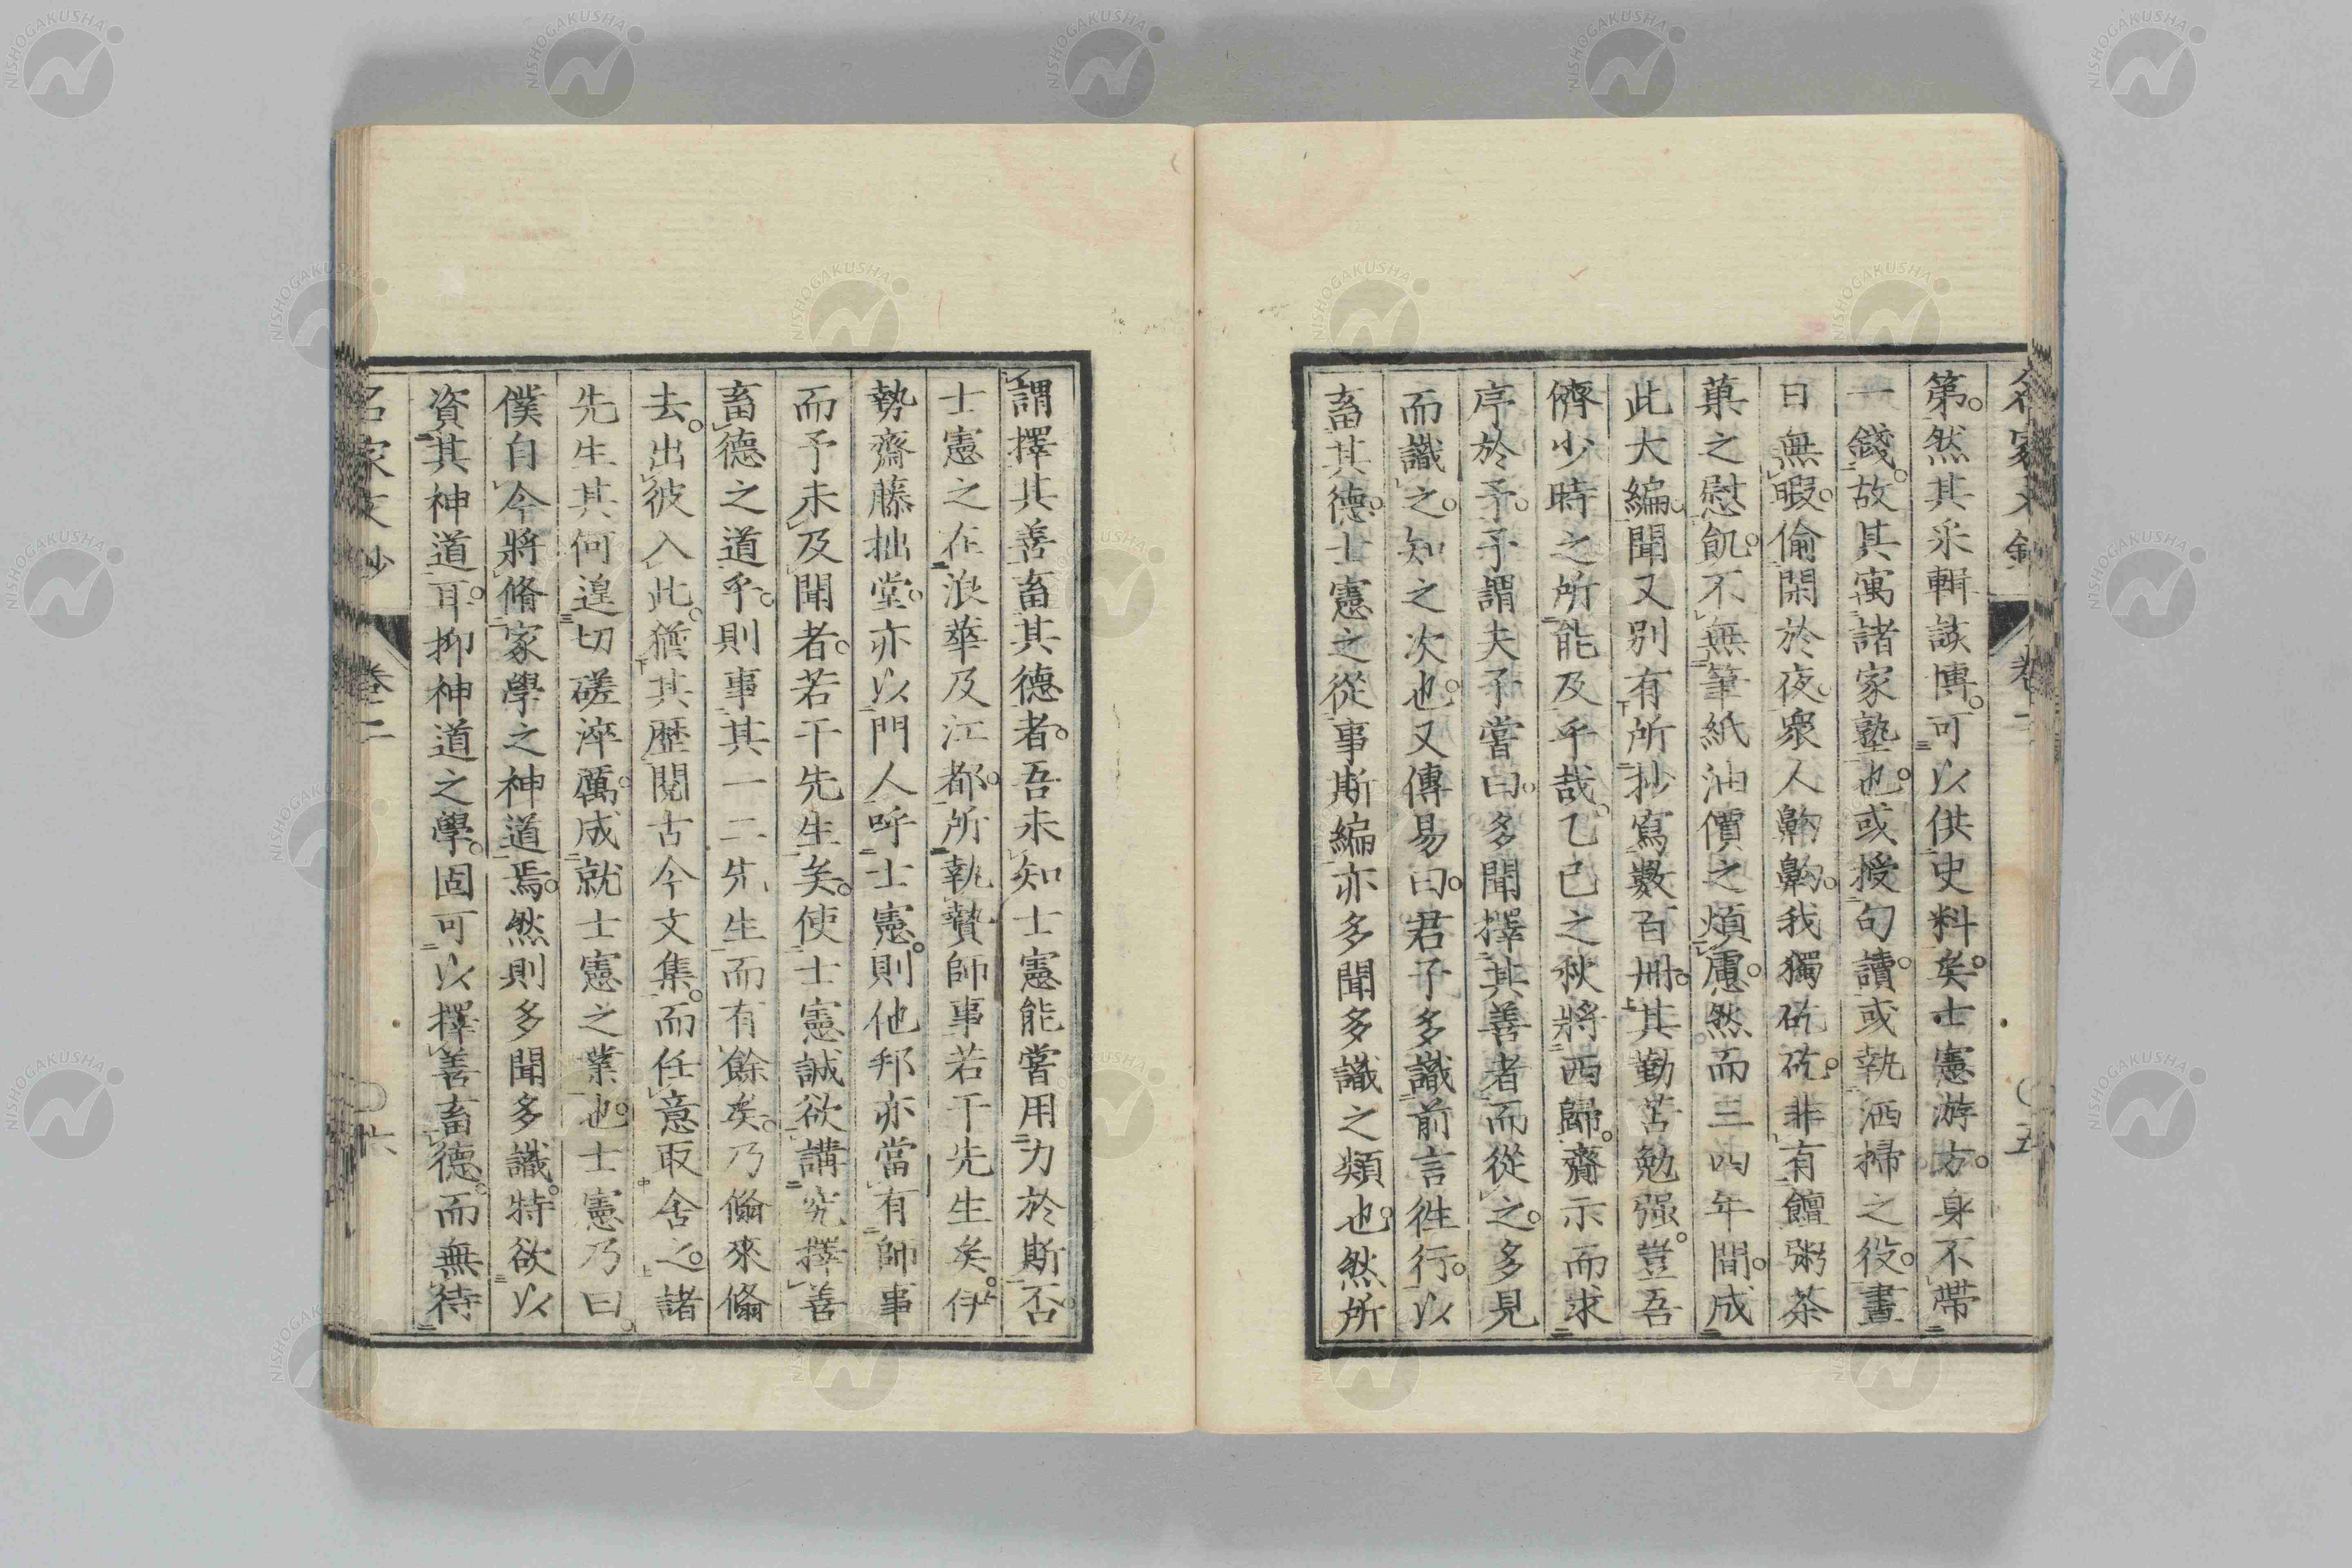 第。然其采輯該博。可以供史料矣。士憲游方。身不帶
一錢。故其寓諸家塾也。或授句讀。或執洒掃之役。晝
日無暇。偷閑於夜。衆人齁齁。我獨矻矻。非有饘粥茶
菓之慰飢。不無筆紙油價之煩慮。然而三四年間。成
此大編。聞又別有所抄寫數百卌。其勤苦勉强。豈吾
儕少時之所能及乎哉。乙巳之秋將西歸。齎示而求
序於予。予謂夫子嘗曰。多聞擇其善者而從之。多見
而識之。知之次也。又傳易曰。君子多識前言徃行。以
畜其德。士憲之從事斯編亦多聞多識之類也。然所
謂擇其善畜其德者。吾未知士憲能嘗用力於斯否。
士憲之在浪華及江都。所執贄師事若干先生矣。伊
勢齋藤拙堂。亦以門人呼士憲。則他邦亦當有師事
而予未及聞者。若干先生矣。使士憲誠欲講究擇善
畜德之道乎。則事其一二先生而有餘矣。乃翛來翛
去。出彼入此。猶其歷閱古今文集。而任意取舍之。諸
先生其何遑切磋淬厲。成就士憲之業也。士憲乃曰。
僕自今將脩家學之神道焉。然則多聞多識。特欲以
資其神道耳。抑神道之學。固可以擇善畜德。而無待
名家文抄 卷二 六
名家文鈔 卷二 五
NISHOGAKUSHA